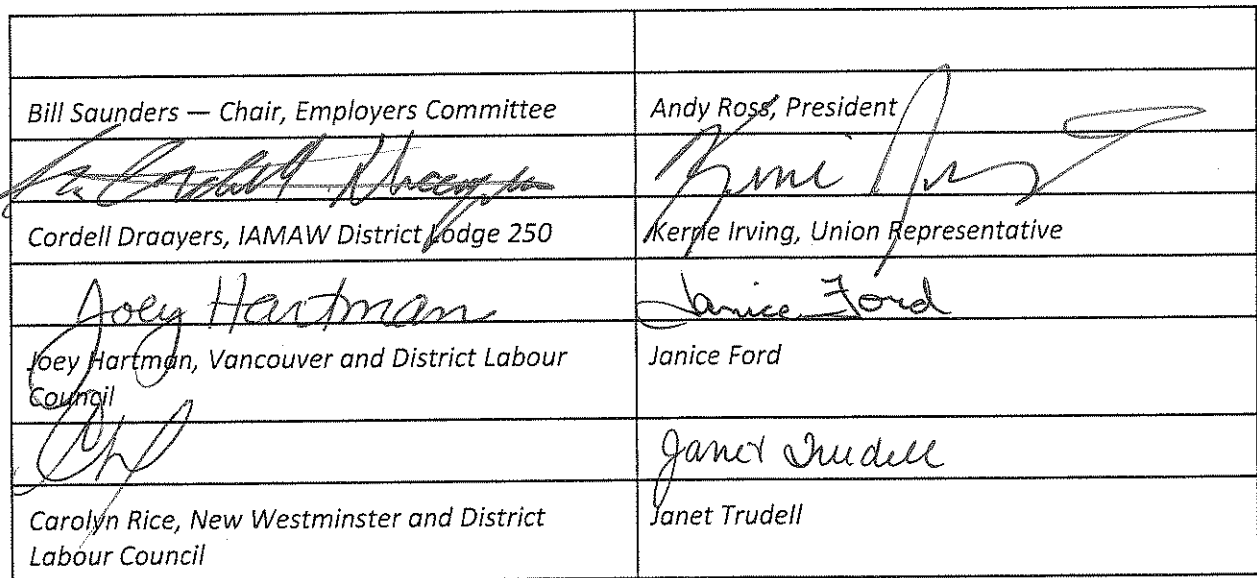 Bill Saunders — Chair, Employers Committee
Andy Ross, President
Kerrie Irving, Union Representative
Cordell Draayers, IAMAW District Lodge 250
Joey Hartman
Janice Ford
Joey Hartman, Vancouver and District Labour
Council
Janice Ford
Janet Trudell
Carolyn Rice, New Westminster and District
Labour Council
Janet Trudell